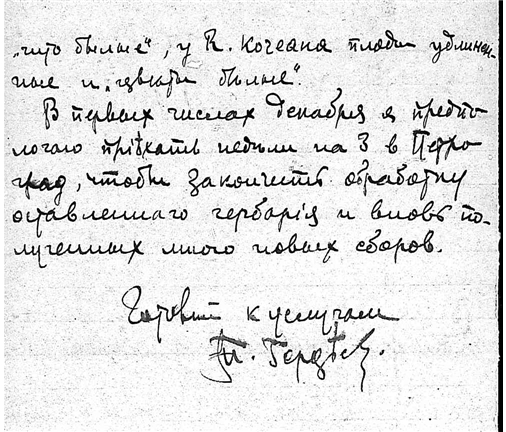 „что бѣлые", у R. плоды удлинен-
ные и „цвѣты бѣлые".
В первых числах декабря я предпо
логаю пріѣхать недѣли на 3 в Петро
град, чтобы закончить обработку
оставленнаго гербарія и вновь по-
лученных мною новых сборов.
Готовый к услугам
Т. Гордѣев.